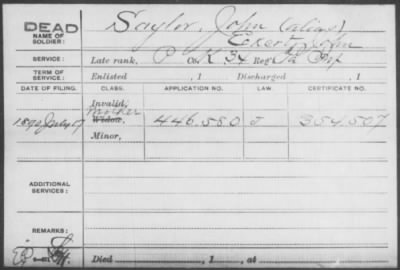 DEAD
NAME OF SOLDIER:
Saylor, John (alias)
Eckert, John
SERVICE:
Late rank, P Co. K 34 Reg't Pa Inf
TERM OF SERVICE:
Enlisted , 1 Discharged , 1
DATE OF FILING. CLASS. APPLICATION NO. LAW. CERTIFICATE NO.
Invalid,
Mother
1890 July 17 Widow, 446.580 J 354.507
Minor,
ADDITIONAL SERVICES:
REMARKS:
Died , 1 , at